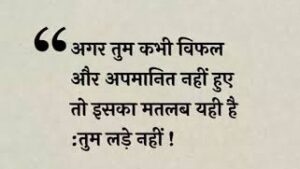 “ अगर तुम कभी विफल
और अपमानित नहीं हुए
तो इसका मतलब यही है
:तुम लड़े नहीं !